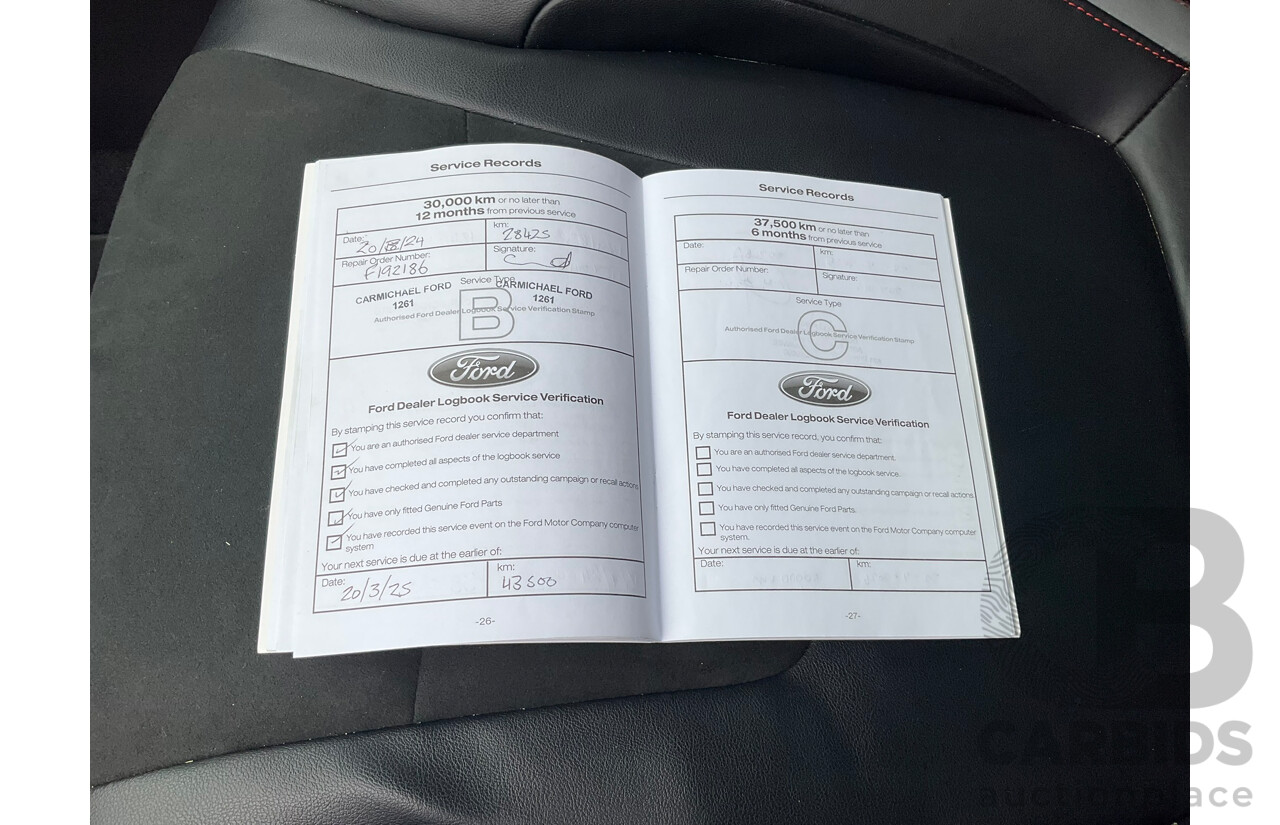 Service Records
30,000 km or no later than
12 months from previous service
Date: 20/8/24
km: 28425
Repair Order Number: F192186
Signature:
Service Type
CARMICHAEL FORD
1261
CARMICHAEL FORD
1261
B
Authorised Ford Dealer Logbook Service Verification Stamp
Ford
Ford Dealer Logbook Service Verification
By stamping this service record you confirm that:
You are an authorised Ford dealer service department
You have completed all aspects of the logbook service
You have checked and completed any outstanding campaign or recall actions
You have only fitted Genuine Ford Parts
You have recorded this service event on the Ford Motor Company computer
system
Your next service is due at the earlier of:
Date: 20/3/25
km: 43500
-26-
Service Records
37,500 km or no later than
6 months from previous service
Date:
km:
Repair Order Number:
Signature:
Service Type
C
Authorised Ford Dealer Logbook Service Verification Stamp
Ford
Ford Dealer Logbook Service Verification
By stamping this service record, you confirm that:
You are an authorised Ford dealer service department.
You have completed all aspects of the logbook service.
You have checked and completed any outstanding campaign or recall actions
You have only fitted Genuine Ford Parts.
You have recorded this service event on the Ford Motor Company computer
system.
Your next service is due at the earlier of:
Date:
km:
-27-
B
CARBIDS
auctionplace